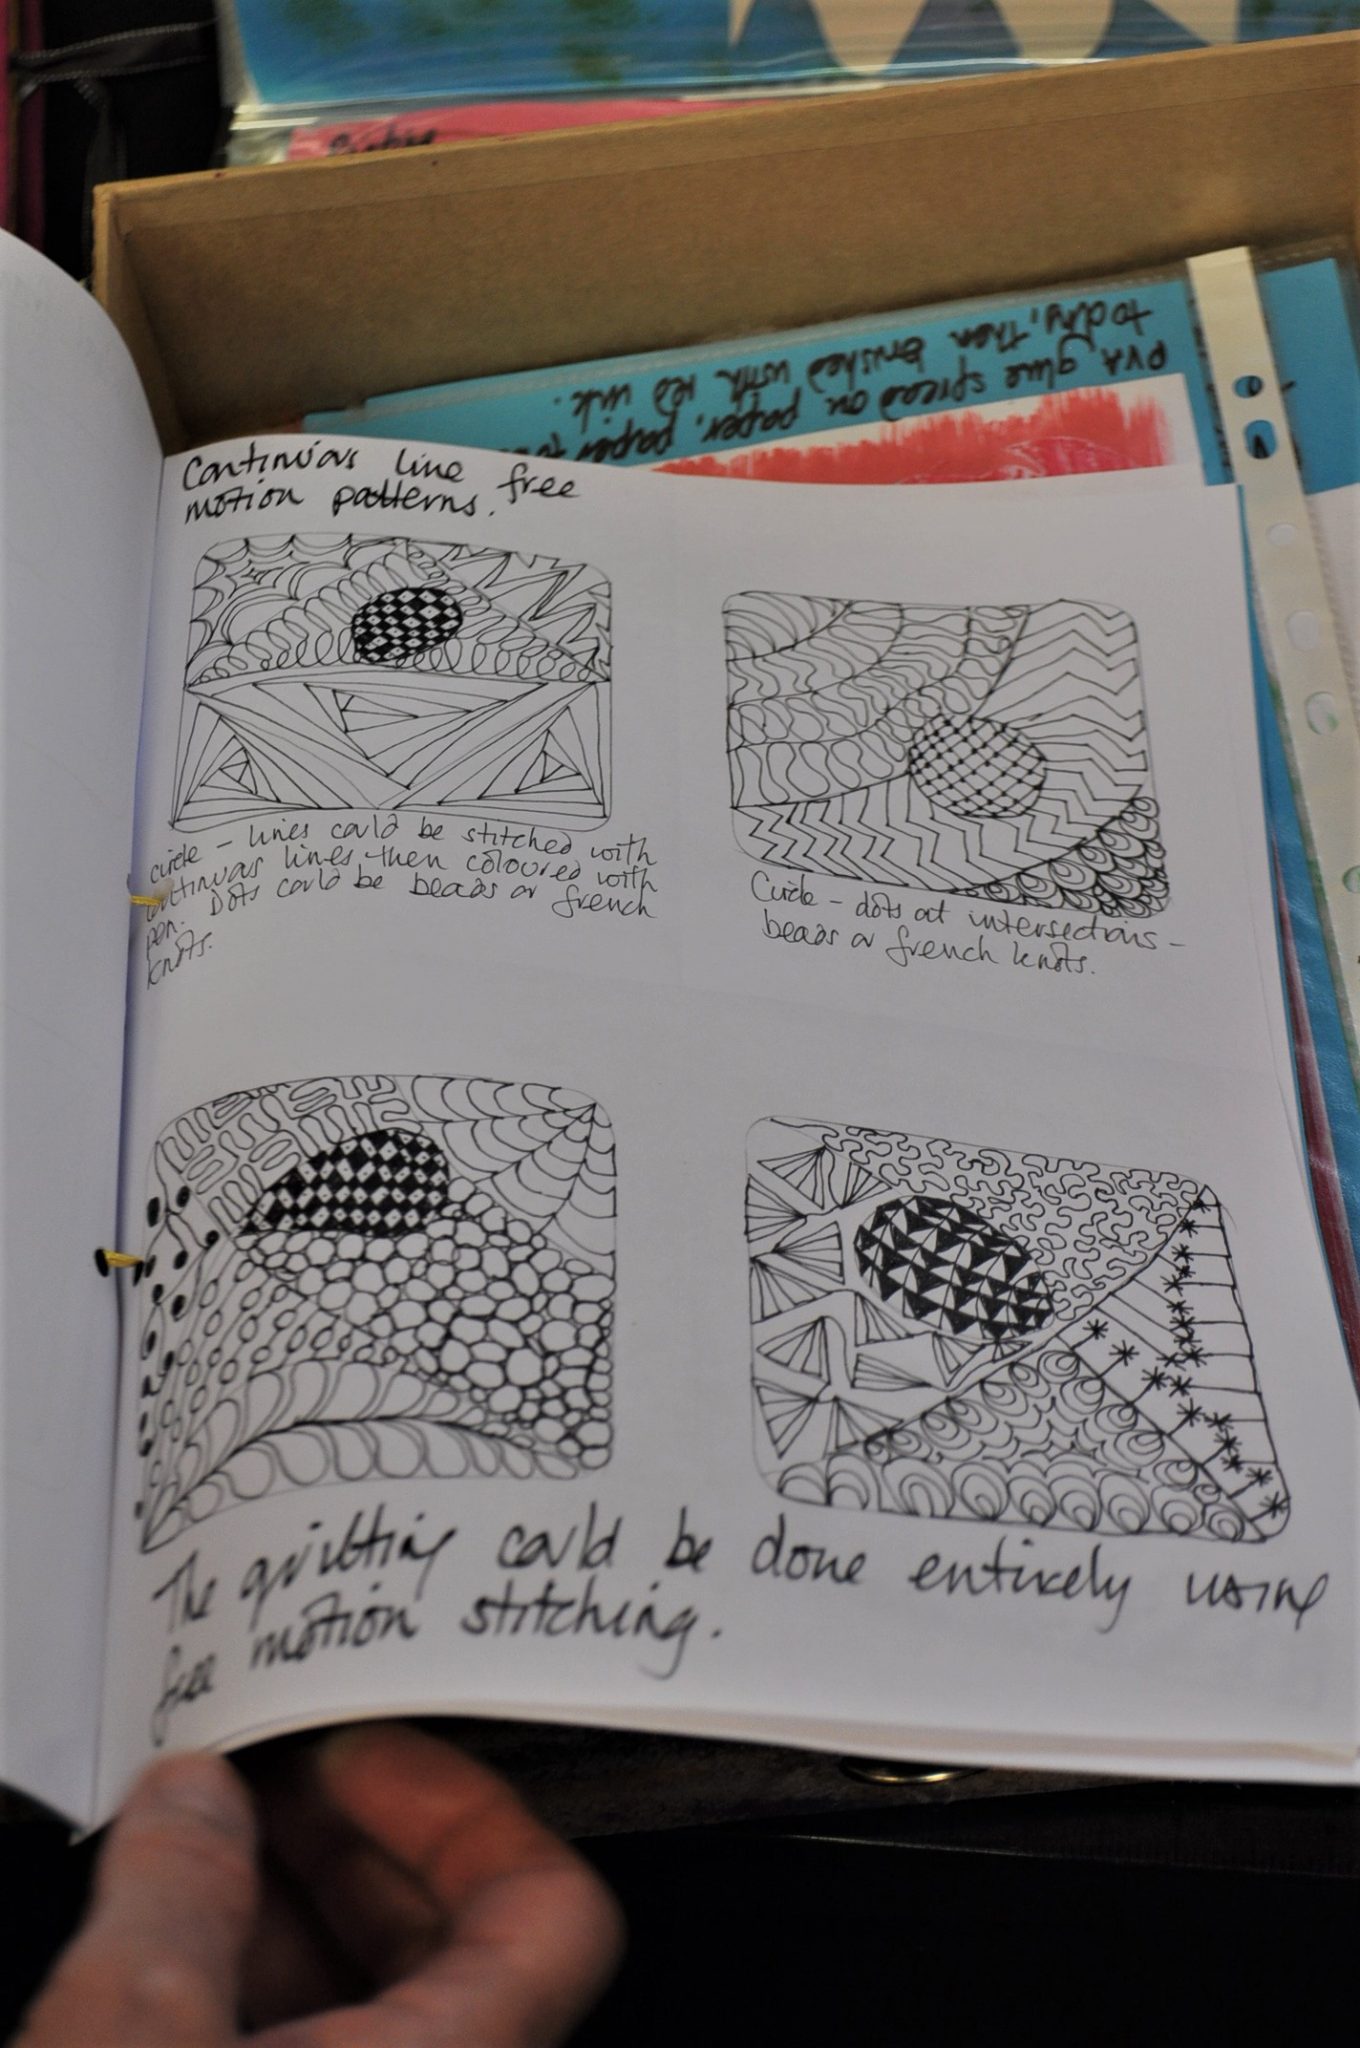 Continuous line free
motion patterns.
circle – lines could be stitched with
continuous lines, then coloured with
pen. Dots could be beads or french
knots.
Circle – dots at intersections –
beads or french knots.
The quilting could be done entirely using
free motion stitching.
PVA glue spread on paper, paper
to dry, then brushed with red ink.